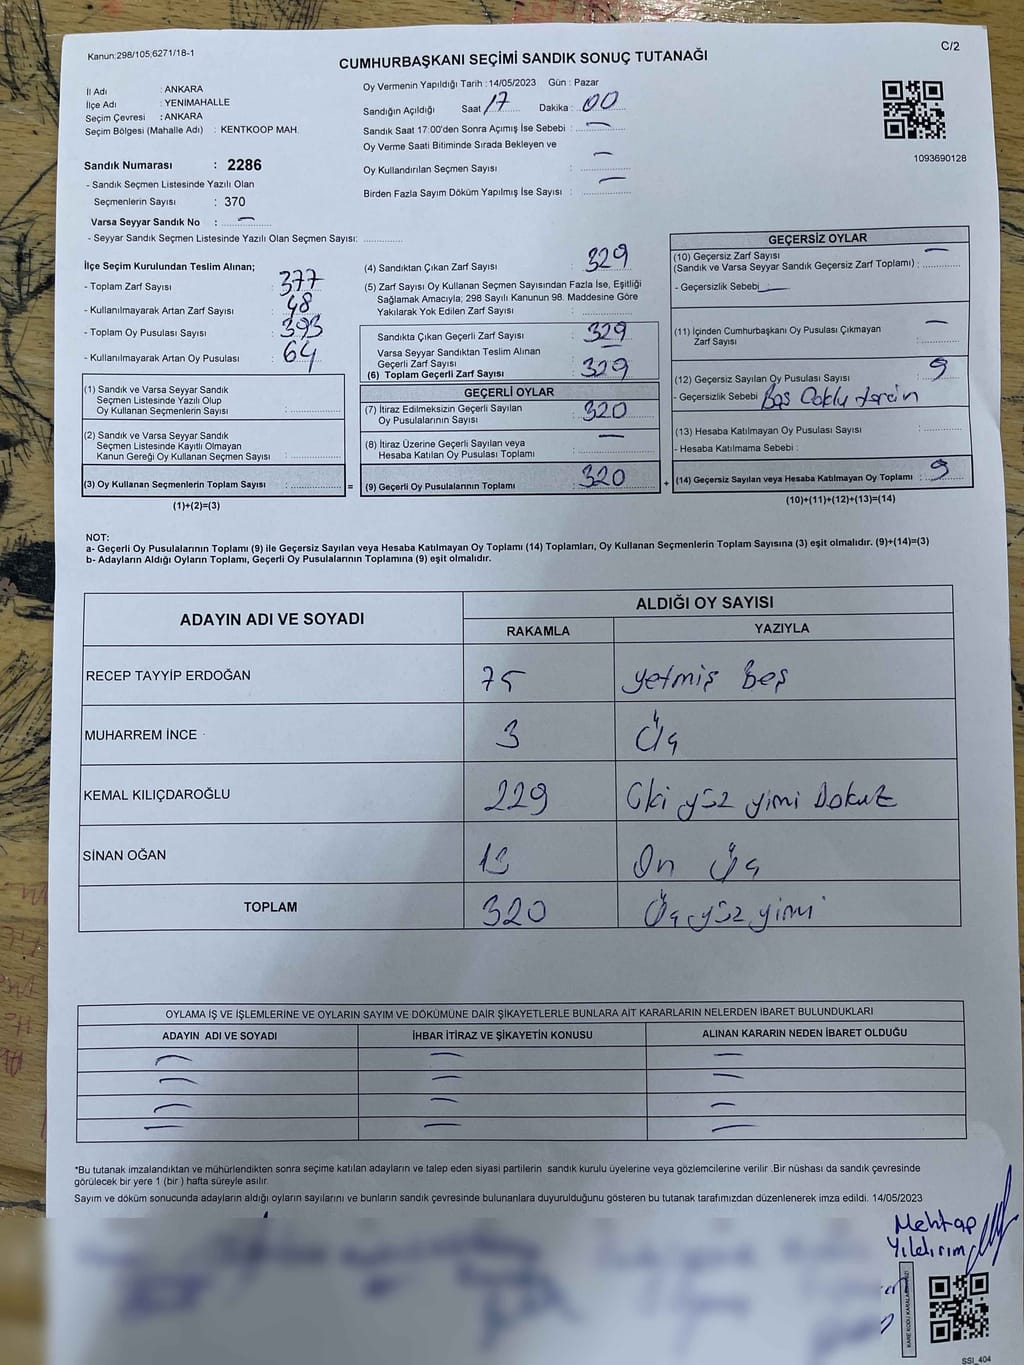 Kanun:298/105;6271/18-1
C/2
CUMHURBAŞKANI SEÇİMİ SANDIK SONUÇ TUTANAĞI
İl Adı : ANKARA
İlçe Adı : YENİMAHALLE
Seçim Çevresi : ANKARA
Seçim Bölgesi (Mahalle Adı) : KENTKOOP MAH.
Sandık Numarası : 2286
- Sandık Seçmen Listesinde Yazılı Olan
Seçmenlerin Sayısı : 370
Varsa Seyyar Sandık No : —
- Seyyar Sandık Seçmen Listesinde Yazılı Olan Seçmen Sayısı: ..............
Oy Vermenin Yapıldığı Tarih : 14/05/2023 Gün : Pazar
Sandığın Açıldığı Saat 17 Dakika : 00
Sandık Saat 17:00'den Sonra Açımış İse Sebebi : —
Oy Verme Saati Bitiminde Sırada Bekleyen ve
Oy Kullandırılan Seçmen Sayısı : —
Birden Fazla Sayım Döküm Yapılmış İse Sayısı : —
1093690128
İlçe Seçim Kurulundan Teslim Alınan;
- Toplam Zarf Sayısı : 377
- Kullanılmayarak Artan Zarf Sayısı : 48
- Toplam Oy Pusulası Sayısı : 393
- Kullanılmayarak Artan Oy Pusulası : 64
(1) Sandık ve Varsa Seyyar Sandık
Seçmen Listesinde Yazılı Olup
Oy Kullanan Seçmenlerin Sayısı : ..............
(2) Sandık ve Varsa Seyyar Sandık
Seçmen Listesinde Kayıtlı Olmayan
Kanun Gereği Oy Kullanan Seçmen Sayısı : ..............
(3) Oy Kullanan Seçmenlerin Toplam Sayısı : .............. =
(1)+(2)=(3)
(4) Sandıktan Çıkan Zarf Sayısı : 329
(5) Zarf Sayısı Oy Kullanan Seçmen Sayısından Fazla İse, Eşitliği
Sağlamak Amacıyla; 298 Sayılı Kanunun 98. Maddesine Göre
Yakılarak Yok Edilen Zarf Sayısı : ..............
Sandıkta Çıkan Geçerli Zarf Sayısı : 329
Varsa Seyyar Sandıktan Teslim Alınan
Geçerli Zarf Sayısı : —
(6) Toplam Geçerli Zarf Sayısı : 329
GEÇERLİ OYLAR
(7) İtiraz Edilmeksizin Geçerli Sayılan
Oy Pusulalarının Sayısı : 320
(8) İtiraz Üzerine Geçerli Sayılan veya
Hesaba Katılan Oy Pusulası Toplamı : —
(9) Geçerli Oy Pusulalarının Toplamı : 320 +
GEÇERSİZ OYLAR
(10) Geçersiz Zarf Sayısı
(Sandık ve Varsa Seyyar Sandık Geçersiz Zarf Toplamı) : —
- Geçersizlik Sebebi : —
(11) İçinden Cumhurbaşkanı Oy Pusulası Çıkmayan
Zarf Sayısı : —
(12) Geçersiz Sayılan Oy Pusulası Sayısı : 9
- Geçersizlik Sebebi Boş
(13) Hesaba Katılmayan Oy Pusulası Sayısı : ..............
- Hesaba Katılmama Sebebi :
(14) Geçersiz Sayılan veya Hesaba Katılmayan Oy Toplamı : 9
(10)+(11)+(12)+(13)=(14)
NOT:
a- Geçerli Oy Pusulalarının Toplamı (9) ile Geçersiz Sayılan veya Hesaba Katılmayan Oy Toplamı (14) Toplamları, Oy Kullanan Seçmenlerin Toplam Sayısına (3) eşit olmalıdır. (9)+(14)=(3)
b- Adayların Aldığı Oyların Toplamı, Geçerli Oy Pusulalarının Toplamına (9) eşit olmalıdır.
ADAYIN ADI VE SOYADI
ALDIĞI OY SAYISI
RAKAMLA YAZIYLA
RECEP TAYYİP ERDOĞAN 75 yetmiş beş
MUHARREM İNCE 3 Üç
KEMAL KILIÇDAROĞLU 229 İki yüz yimi Dokuz
SİNAN OĞAN 13 On Üç
TOPLAM 320 Üç yüz yimi
OYLAMA İŞ VE İŞLEMLERİNE VE OYLARIN SAYIM VE DÖKÜMÜNE DAİR ŞİKAYETLERLE BUNLARA AİT KARARLARIN NELERDEN İBARET BULUNDUKLARI
ADAYIN ADI VE SOYADI İHBAR İTİRAZ VE ŞİKAYETİN KONUSU ALINAN KARARIN NEDEN İBARET OLDUĞU
— — —
— — —
— — —
— — —
*Bu tutanak imzalandıktan ve mühürlendikten sonra seçime katılan adayların ve talep eden siyasi partilerin sandık kurulu üyelerine veya gözlemcilerine verilir .Bir nüshası da sandık çevresinde
görülecek bir yere 1 (bir ) hafta süreyle asılır.
Sayım ve döküm sonucunda adayların aldığı oyların sayılarını ve bunların sandık çevresinde bulunanlara duyurulduğunu gösteren bu tutanak tarafımızdan düzenlenerek imza edildi. 14/05/2023
Mehtap
Yıldırım
SSI_404